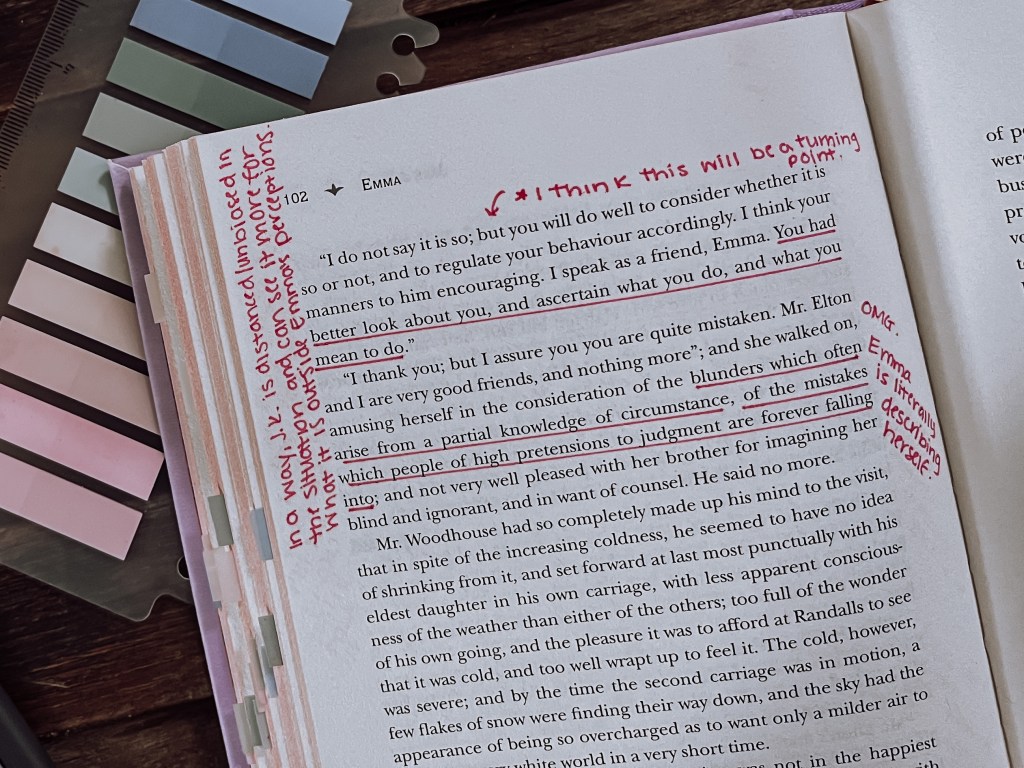 102 EMMA
*I think this will be a turning
point.
"I do not say it is so; but you will do well to consider whether it is
so or not, and to regulate your behaviour accordingly. I think your
manners to him encouraging. I speak as a friend, Emma. You had
better look about you, and ascertain what you do, and what you
mean to do."
"I thank you; but I assure you you are quite mistaken. Mr. Elton
and I are very good friends, and nothing more"; and she walked on,
amusing herself in the consideration of the blunders which often
arise from a partial knowledge of circumstance, of the mistakes
which people of high pretensions to judgment are forever falling
into; and not very well pleased with her brother for imagining her
blind and ignorant, and in want of counsel. He said no more.
Mr. Woodhouse had so completely made up his mind to the visit,
that in spite of the increasing coldness, he seemed to have no idea
of shrinking from it, and set forward at last most punctually with his
eldest daughter in his own carriage, with less apparent conscious-
ness of the weather than either of the others; too full of the wonder
of his own going, and the pleasure it was to afford at Randalls to see
that it was cold, and too well wrapt up to feel it. The cold, however,
was severe; and by the time the second carriage was in motion, a
few flakes of snow were finding their way down, and the sky had the
appearance of being so overcharged as to want only a milder air to
white world in a very short time.
not in the happiest
In a way, J.K. is distanced/unbiased in
the situation and can see it more for
what it is outside Emma's perceptions.
OMG.
Emma
is literally
describing
herself.
of
were